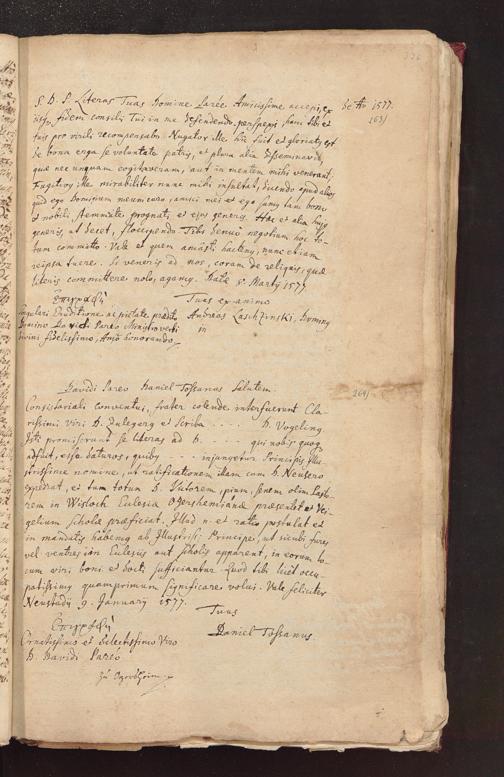 S. D. P. Literas Tuas Domine Parée Amicissime accepi, ex
iisq, fidem consilii Tui in me defendendo perspexi, hanc tibi et
tuis pro virili recompensabo. Nugator ille hic fuit et gloriatq est
de bona erga se voluntate patris, et plura alia disseminavit,
quae nec unquam cogitaveram, aut in mentem mihi venerant.
Fugitivq ille mirabiliter nunc mihi insultat, dicendo apud alios
quod ego Domiseum meum euro, amici mei et ego simq tam boni
et nobili stemmate prognati, et ejus generis. Haec et alia hujq
generis, ut decet, floccipendo. Tibi denuo negotium hoc to-
tum committo. Vale et quem amasti hactenq, nunc etiam
reipsa tuere. Si veneris ad nos, coram de reliquis, quae
literis committere nolo, agamq. Datae 8. Martij 1577
de Ao 1577.
263)
Επιγραφὴ
Singulari Eruditione ac pietate praedito
Domino Davidi Pareo Ministro verbi
divini fidelissimo, Amo honorando
Tuus ex animo
Andreas Laschzinski,
in
Davidi Pareo Daniel Tossanus Salutem
264)
Consistoriali conventui, frater colende interfuerunt Cla-
rissimi viri D. Zulegerq et Scriba - - - - D. Vogeling
Isti promiserunt se literas ad D. - - - - qui nobis quoq
adfuit, esse daturos, quibq - - - injungetur Principis Illu-
strissimi nomine, ut ratificationem illam cum D. Neusero
expediat, et tum totum D. Tutorem, pium, senem olim Pasto-
rem in Wisloch Ecclesiae Ogershemianae praesentet et Vei-
gelium scholae praeficiat. Illud n. et ratio postulat et
in mandatis habemq ab Illustrissq Principe, ut sicubi fures
vel ventres in Ecclesiis aut scholis apparent, in eorum lo-
cum viri boni et docti sufficiantur. Quod tibi licet occu-
patissimq quamprimum significare volui. Vale feliciter
Neustadij 9. January 1577.
Επιγραφὴ
Ornatissimo et dilectissimo Viro
D. Davidi Pareo
Tuus
Daniel Tossanus
zu Ogersheim